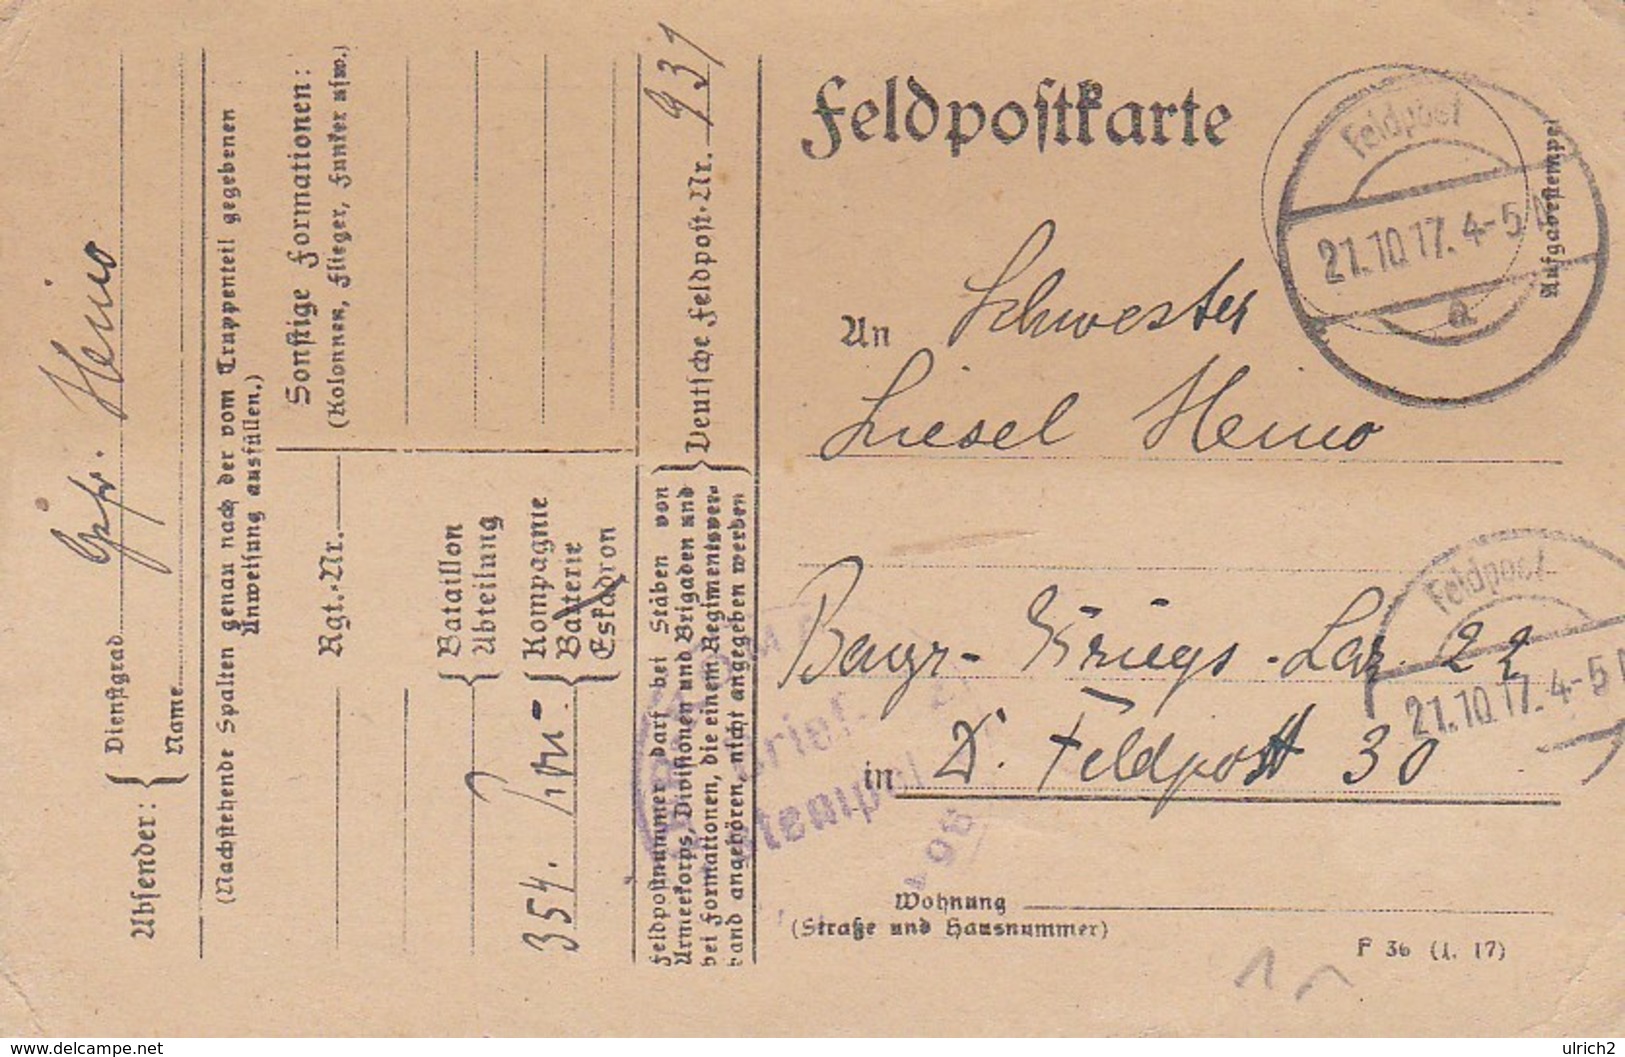 Feldpostkarte
Aufgabestempel
Feldpost
21.10.17. 4-5 N
a
An Schwester
Liesel Heino
Bayr- Kriegs-Laz. 22
in D. Feldpost 30
Feldpost
21.10.17. 4-5 N
Wohnung
(Straße und Hausnummer)
F 36 (1. 17)
Absender: { Dienstgrad Gefr. Heino
Name
(Nachstehende Spalten genau nach der vom Truppenteil gegebenen
Anweisung ausfüllen.)
Rgt.-Nr.
Sonstige Formationen:
(Kolonnen, Flieger, Funker usw.)
Bataillon
Abteilung
354. Kompagnie
Batterie
Eskadron
Feldpostnummer darf bei Stäben von
Armeekorps, Divisionen und Brigaden und
bei Formationen, die einem Regimentsver-
band angehören, nicht angegeben werden
Deutsche Feldpost-Nr. 931
Brief-
stempel
delcampe.net
ulrich2